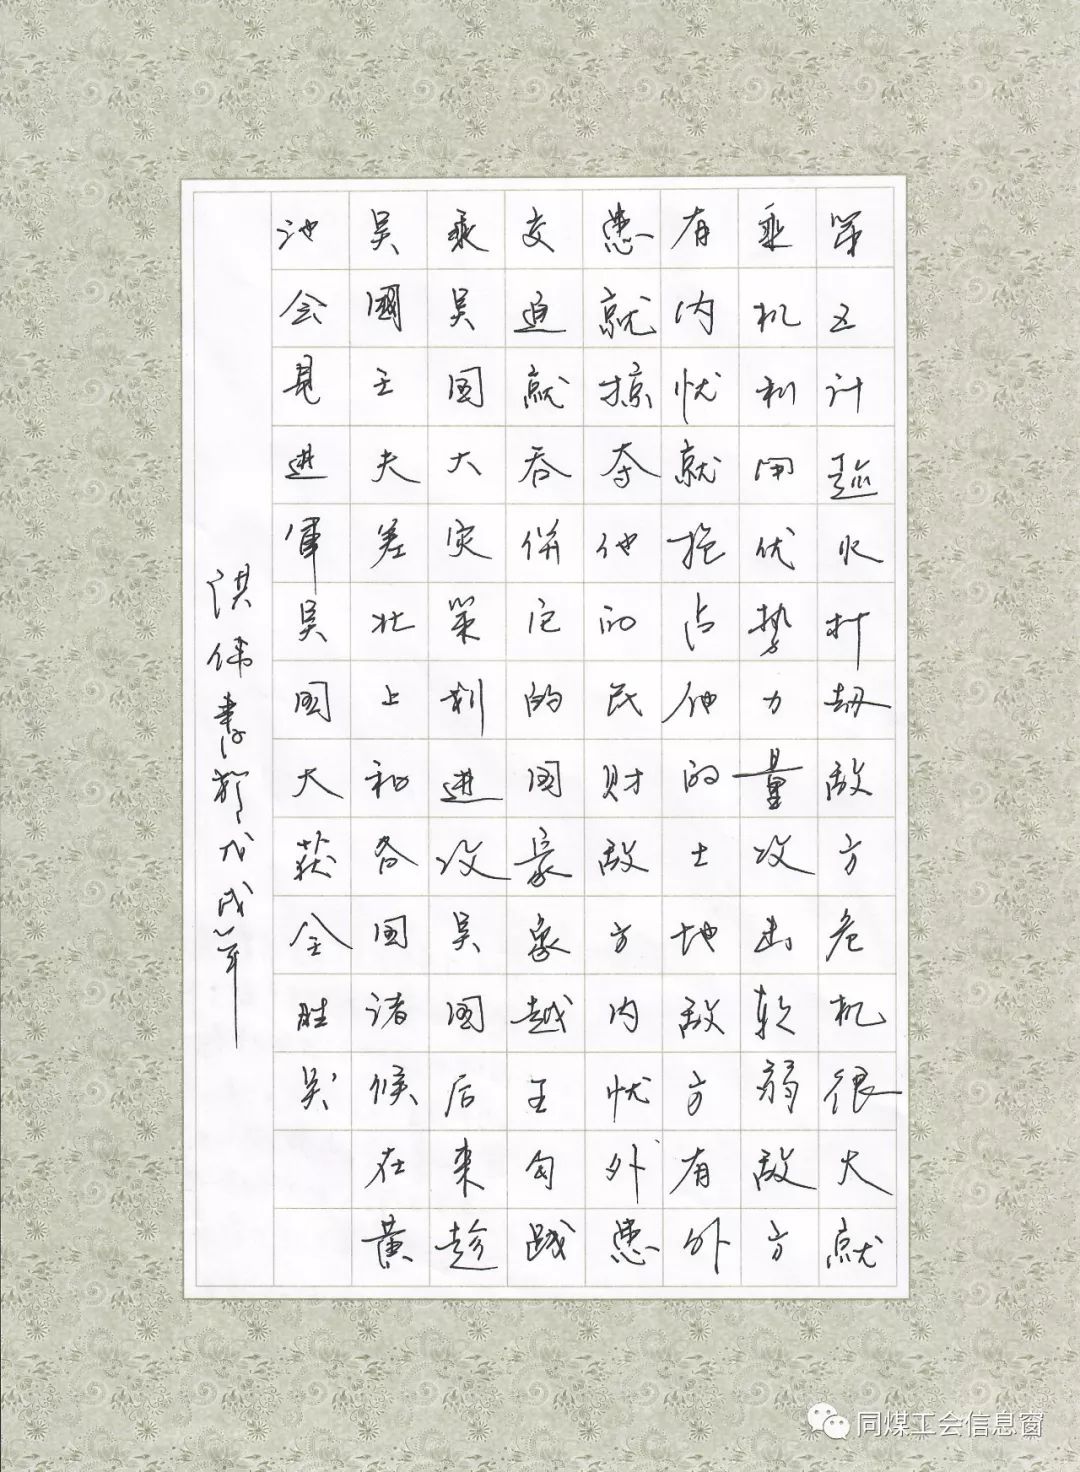 第五计趁火打劫敌方危机很大就
乘机利用优势力量攻击软弱敌方
有内忧就抢占他的土地敌方有外
患就掠夺他的民财敌方内忧外患
交迫就吞併它的国家象越王勾践
乘吴国大灾策划进攻吴国后来趁
吴國王夫差北上和各国诸候在黄
池会見进军吴国大获全胜
伟书于戊戌年
同煤工会信息窗